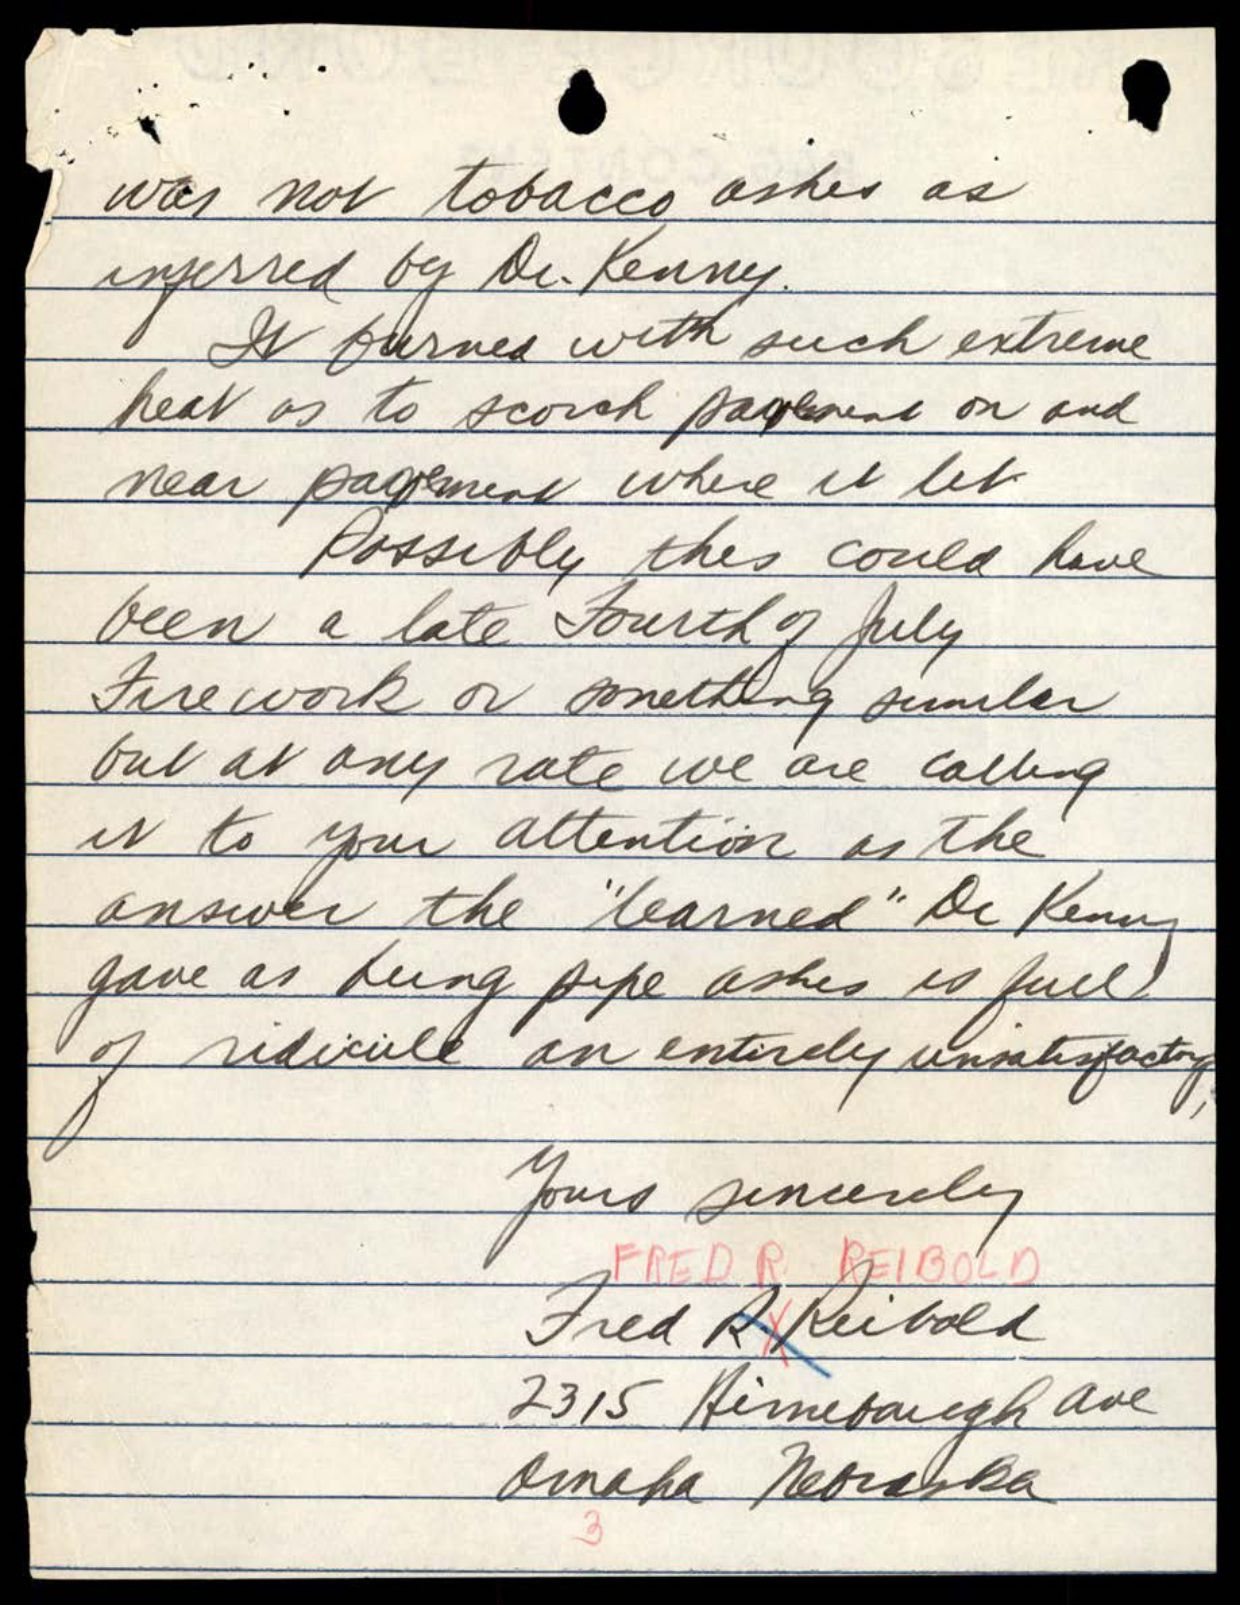 was not tobacco ashes as
inferred by Dr. Kenny.
It burned with such extreme
heat as to scorch pavement on and
near pavement where it lit.
Possibly this could have
been a late Fourth of July
Firework or something similar
but at any rate we are calling
it to your attention as the
answer the "learned" Dr Kenny
gave as being pipe ashes is fuel
of ridicule an entirely unsatisfactory,
Yours sincerely
FRED R REIBOLD
Fred R. Reibold
2315 Himebaugh Ave
Omaha Nebraska
3